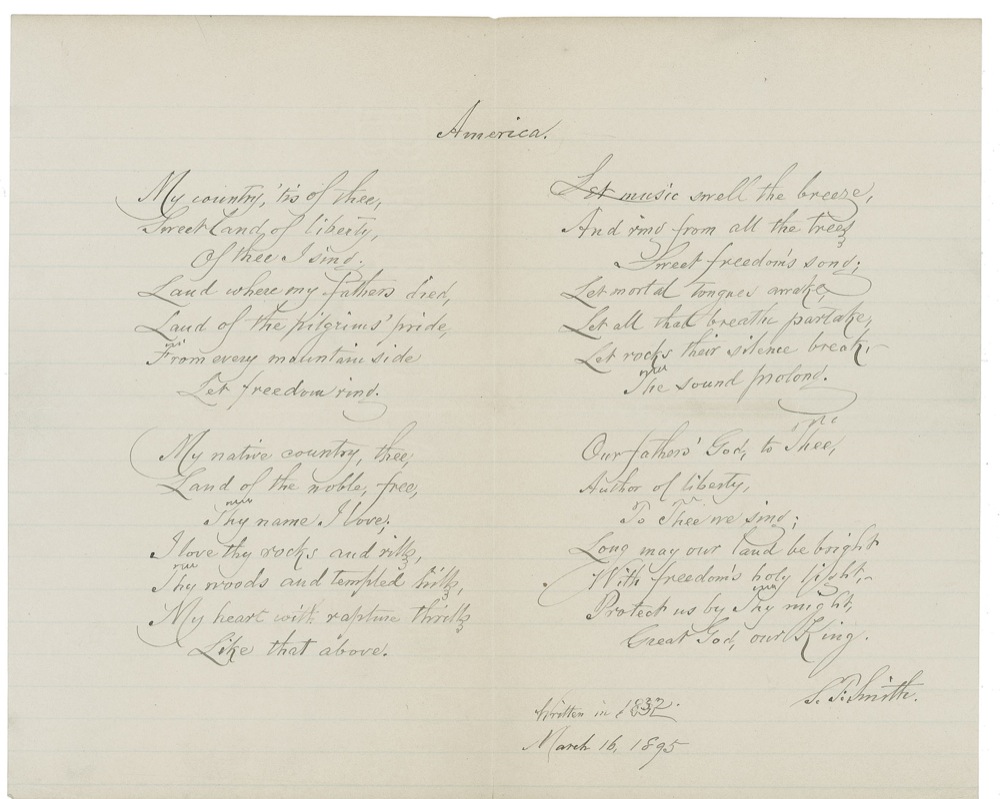 America.
My country, 'tis of thee,
Sweet land of liberty,
Of thee I sing;
Land where my fathers died,
Land of the pilgrims' pride,
From every mountain side
Let freedom ring.
My native country, thee,
Land of the noble, free,
Thy name I love;
I love thy rocks and rills,
Thy woods and templed hills,
My heart with rapture thrills
Like that above.
Let music swell the breeze,
And ring from all the trees
Sweet freedom's song;
Let mortal tongues awake,
Let all that breathe partake,
Let rocks their silence break,—
The sound prolong.
Our fathers' God, to Thee,
Author of liberty,
To Thee we sing;
Long may our land be bright
With freedom's holy light,—
Protect us by Thy might,
Great God, our King.
S. F. Smith.
Written in 1832.
March 16, 1895